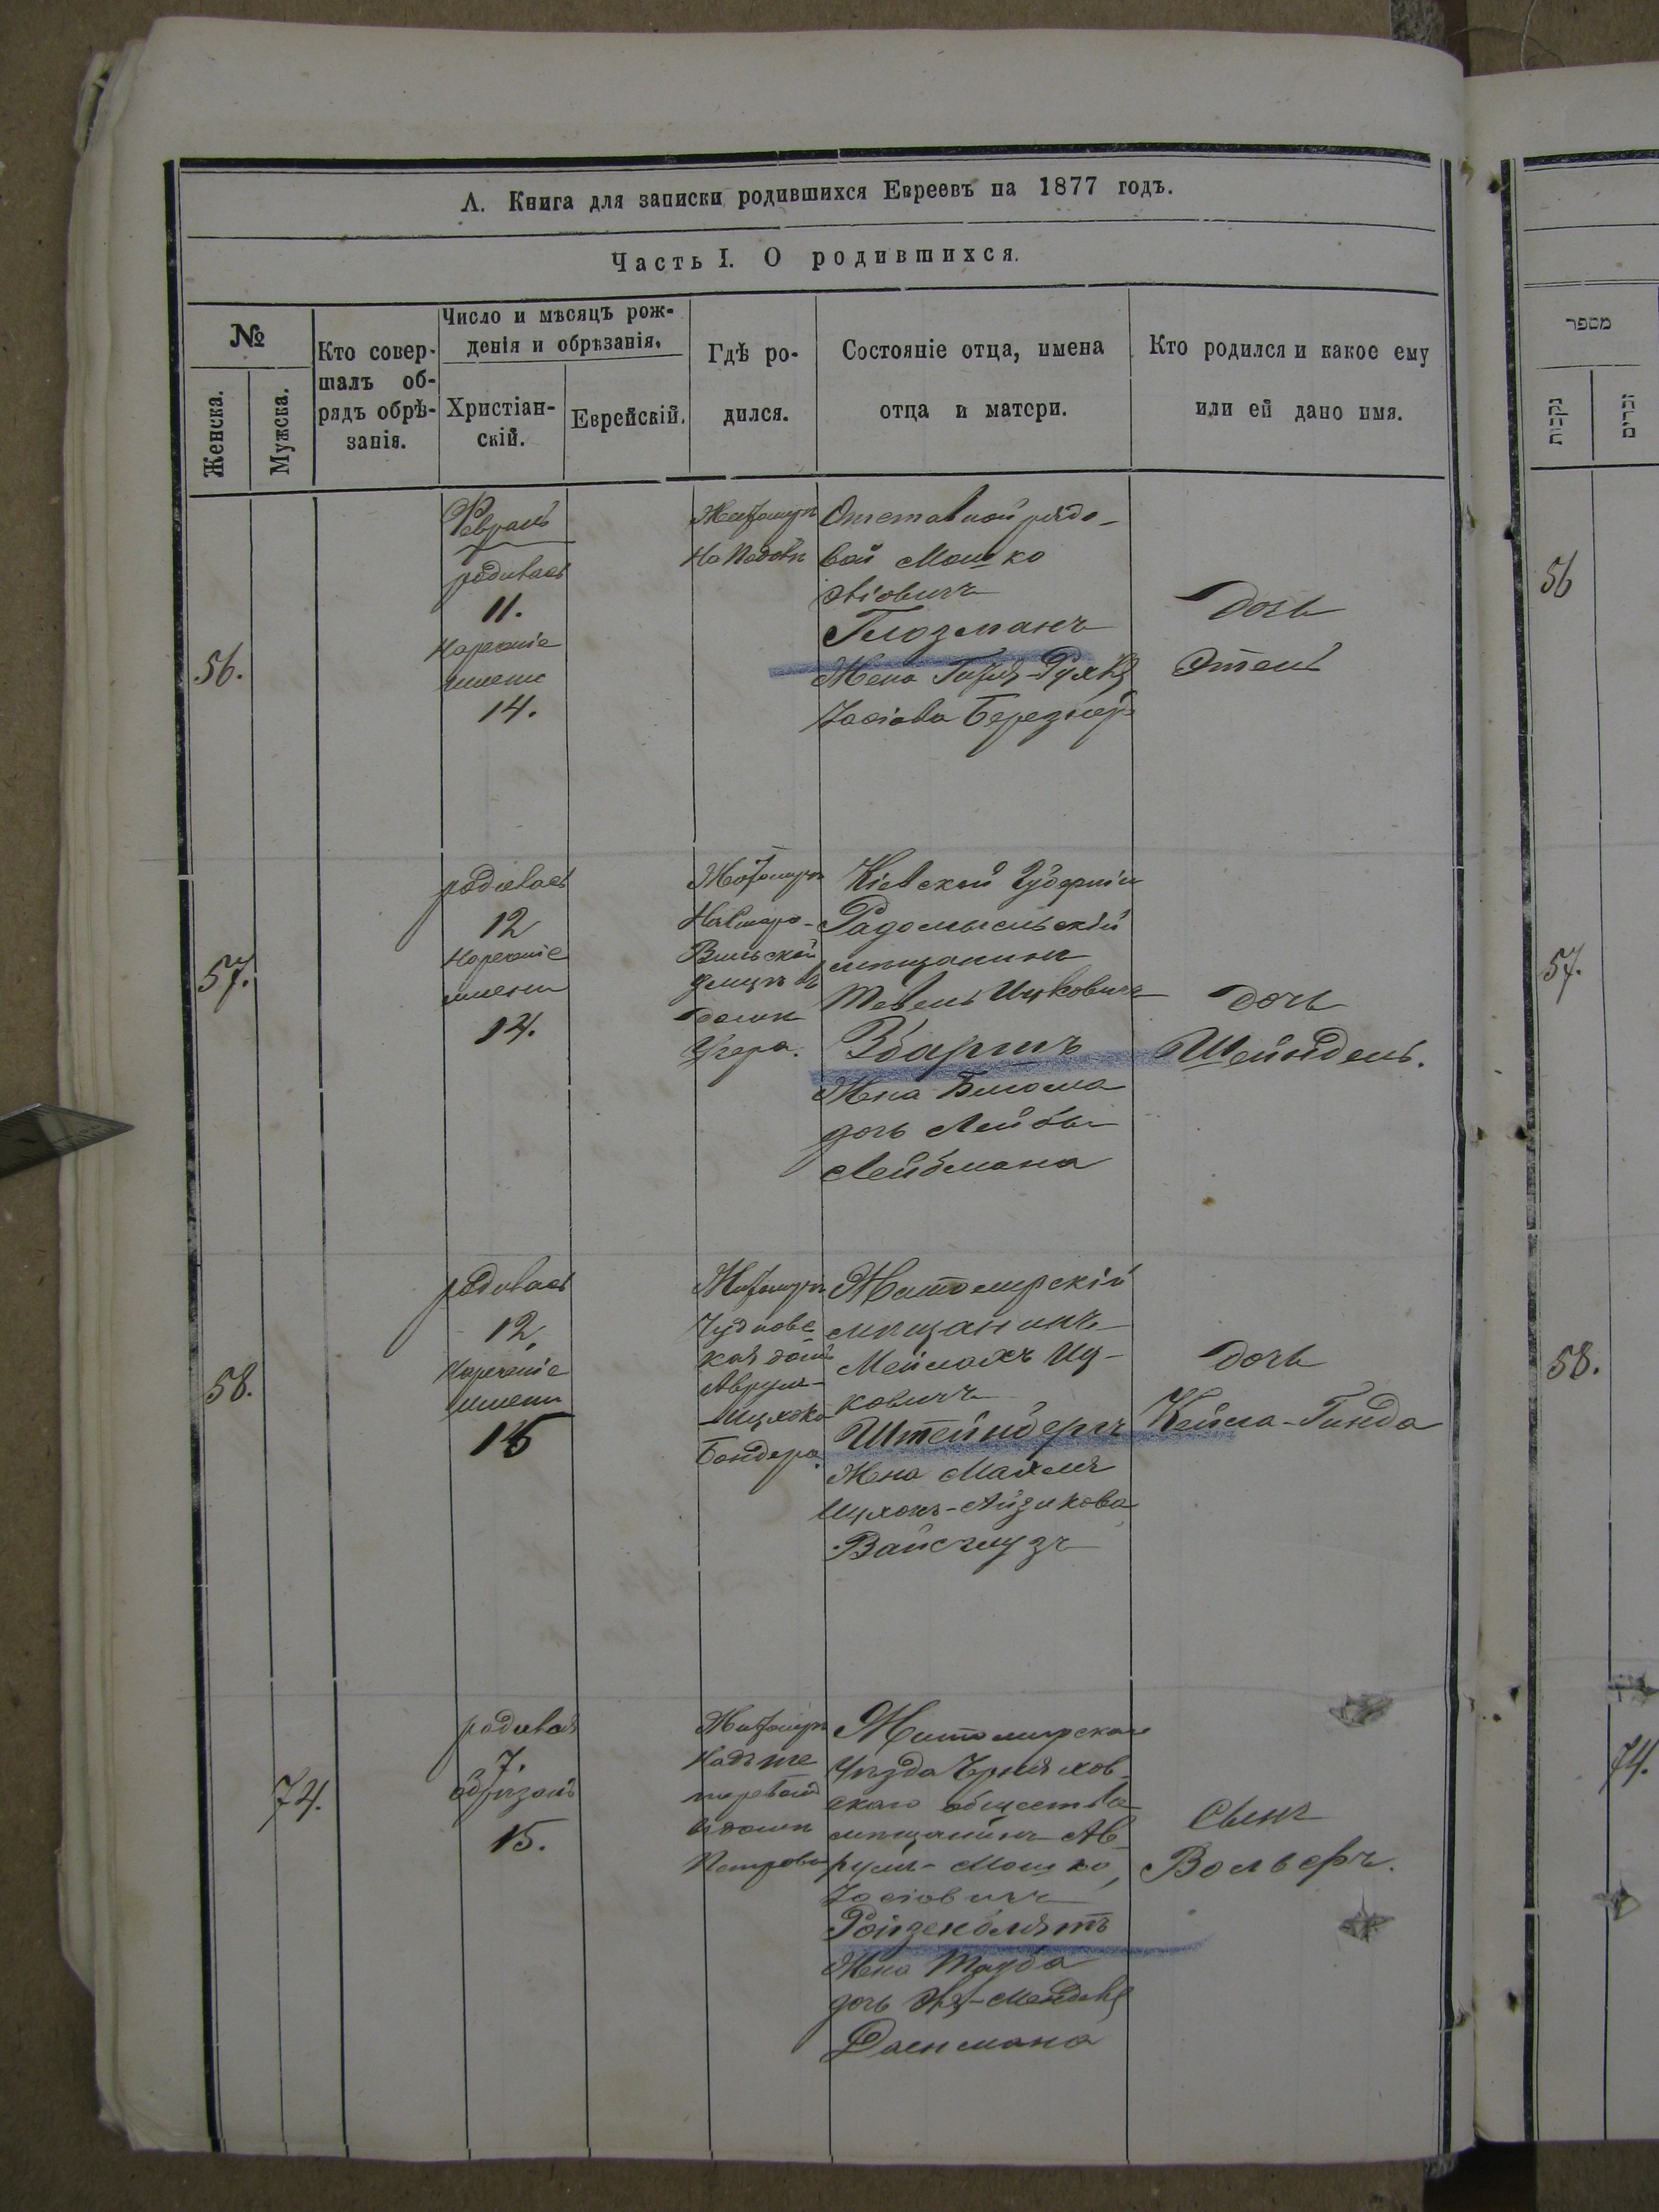 А. Книга для записки родившихся Евреевъ на 1877 годъ.
Часть I. О родившихся.
№
Женска.
Мужска.
Кто совер-
шалъ об-
рядъ обрѣ-
занія.
Число и мѣсяцъ рож-
денія и обрѣзанія.
Христіан-
скій.
Еврейскій.
Гдѣ ро-
дился.
Состояніе отца, имена
отца и матери.
Кто родился и какое ему
или ей дано имя.
56.
Февраль
родилась
11.
Нареченіе
имени
14.
Житомиръ
Отставной рядо-
вой Мошко
Глозманъ
Жена
Дочь
Этель
57.
родилась
12
Нареченіе
имени
14.
Житомиръ
Вильской
улицѣ въ
домѣ
Кіевской Губерніи
Радомысльскій
мѣщанинъ
Тевель Ицковичъ
Збаржъ
Жена Блюма
дочь Лейбы
Лейбмана
Дочь
Шейндель.
58.
родилась
12
Нареченіе
имени
15
Житомиръ
Чуднов-
ская домъ
Аврум-
Ицхока
Бондера
Житомирскій
мѣщанинъ
Мейлахъ Иц-
ковичъ
Штейнбергъ
Жена Маля
Ицхокъ-Айзикова
Дочь
Кейла-Гинда
74.
родился
7.
обрѣзанъ
15.
Житомиръ
въ домѣ
Петрова
Житомирскаго
Уѣзда Черняхов-
скаго общества
мѣщанинъ Ав-
румъ-Мошко
Іосіовичъ
Ройзенблятъ
Жена Тауба
дочь
Сынъ
Вольфъ.
מספר
נקבות
זכרים
56
57.
58.
74.